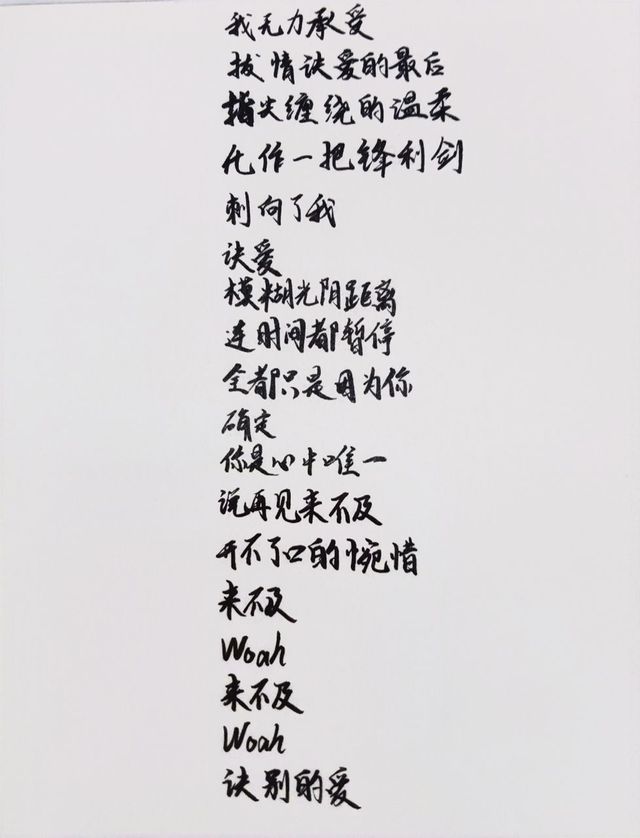 我无力承受
拔情诀爱的最后
指尖缠绕的温柔
化作一把锋利剑
刺向了我
诀爱
模糊光阴距离
连时间都暂停
全都只是因为你
确定
你是心中唯一
说再见来不及
开不了口的惋惜
来不及
Woah
来不及
Woah
诀别的爱